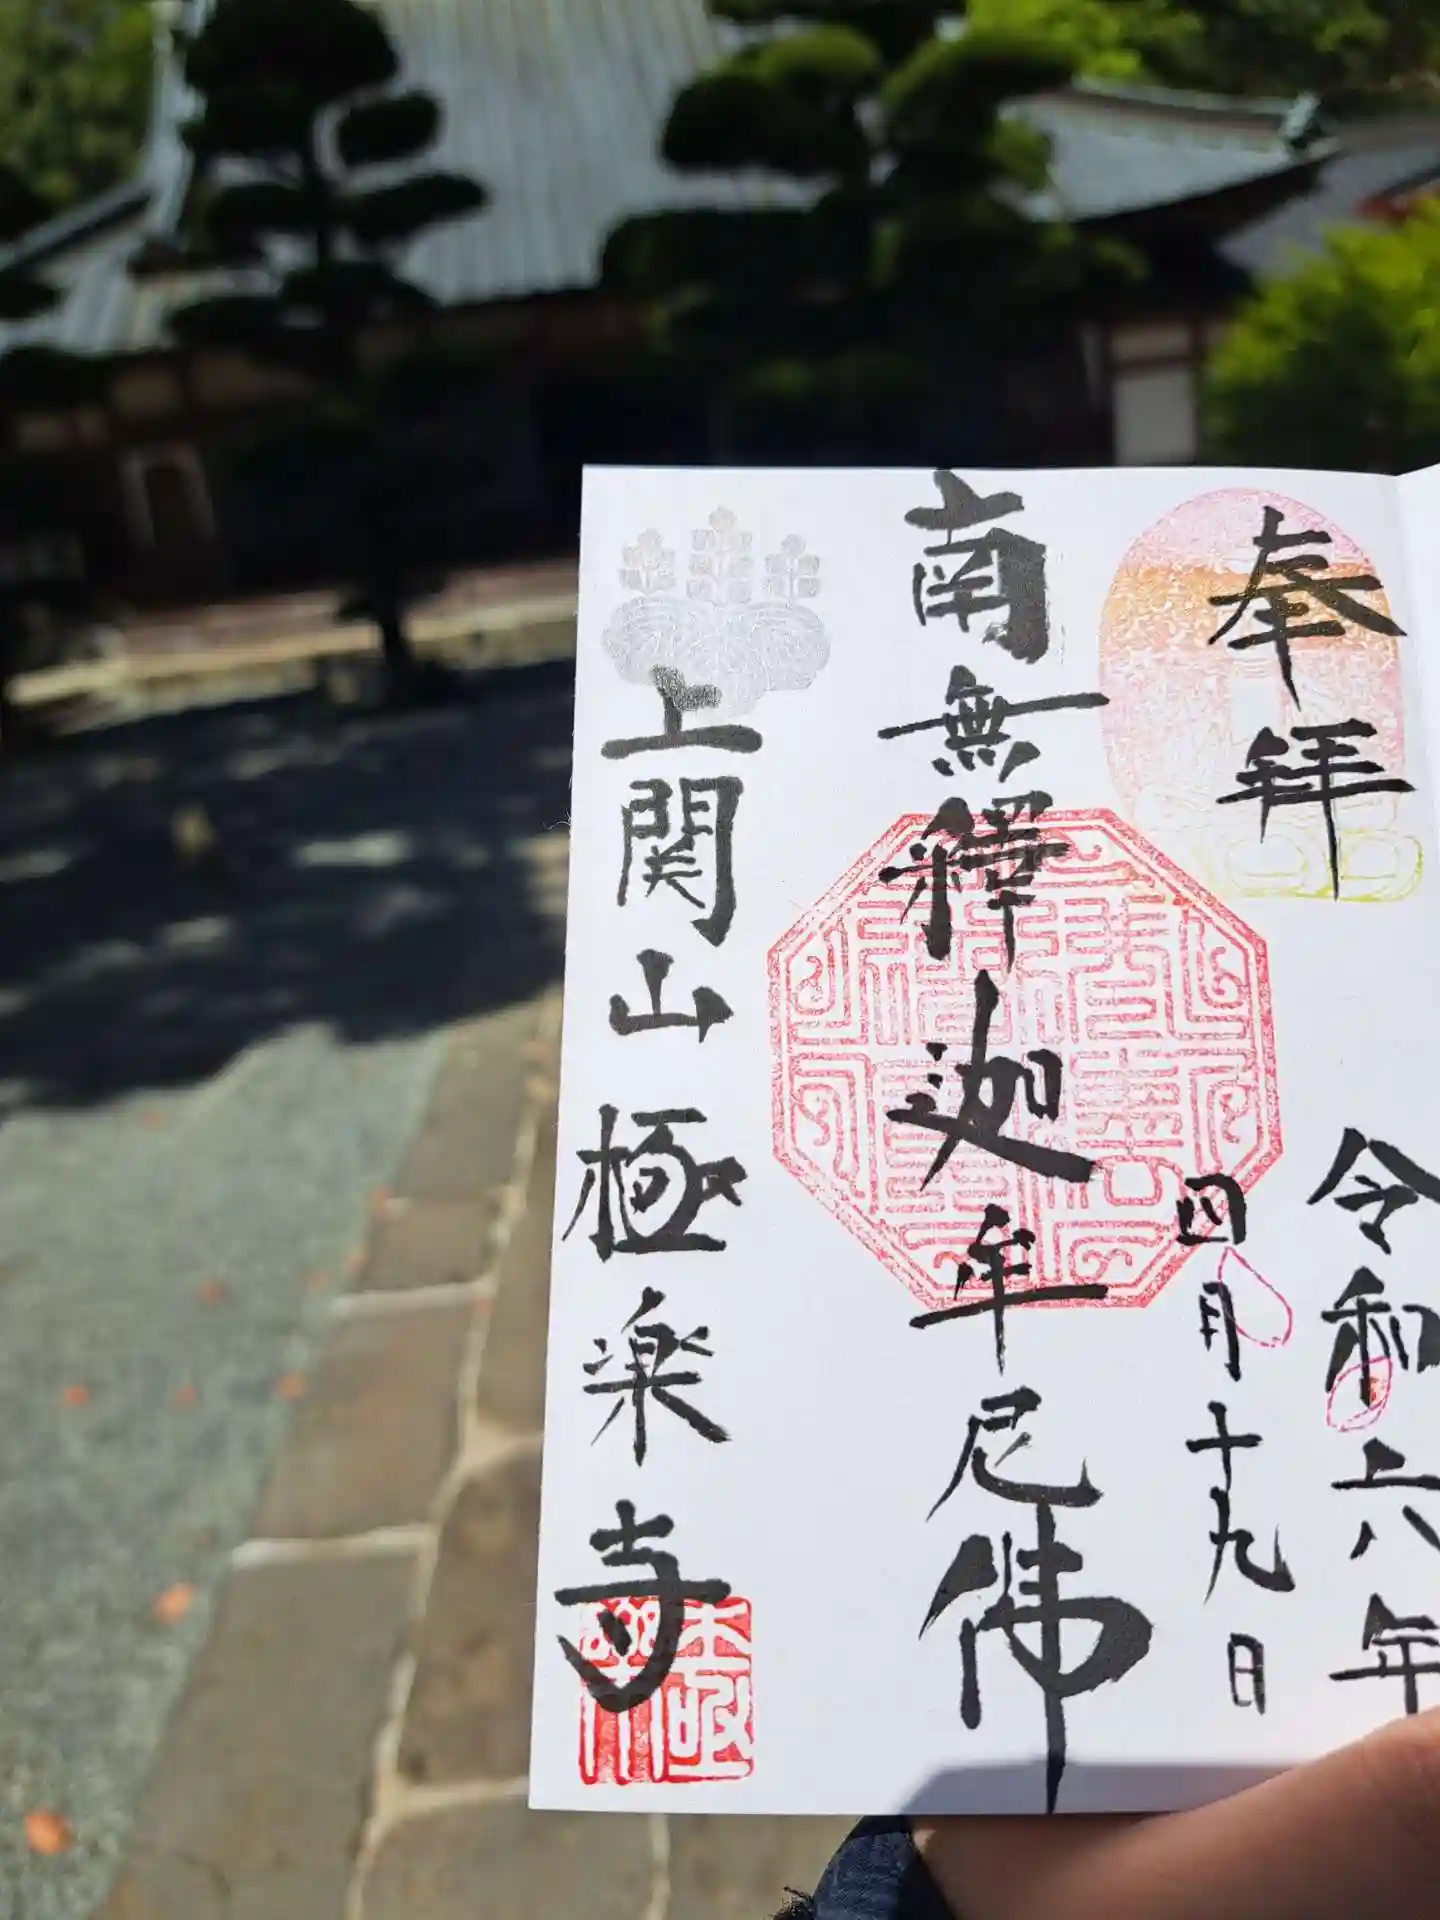 奉拝
令和六年
四月十九日
南無釋迦牟尼佛
上関山極楽寺
極楽